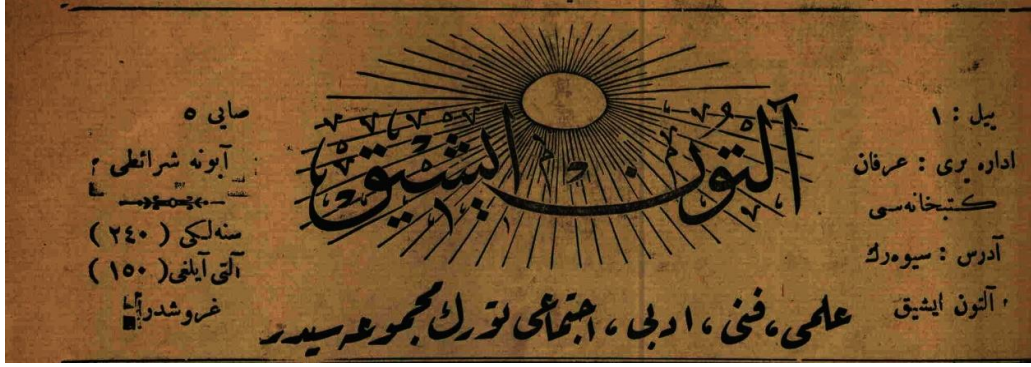 ییل : ١
اداره یری : عرفان
كتبخانه‌سی
آدرس : سیوه‌رك
آلتون ایشیق
آلتون ایشیق
علمی، فنی، ادبی، اجتماعی تورك مجموعه سیدر
صایی ٥
آبونه شرائطی :
سنه‌لكی ( ٢٤٠ )
آلتی آیلغی ( ١٥٠ )
غروشدر